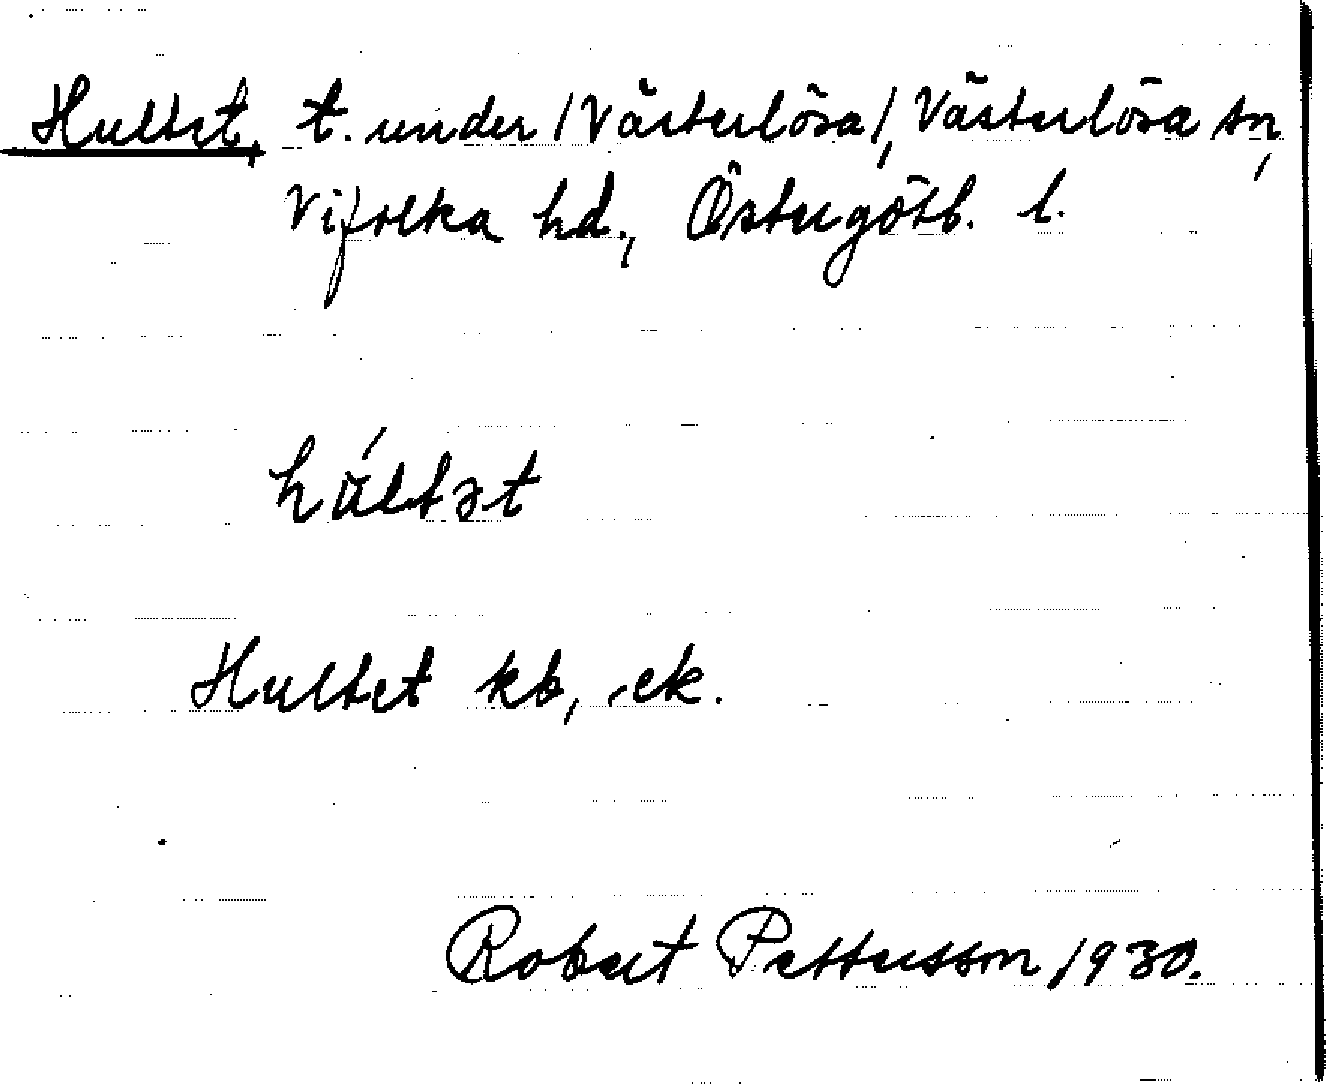 Hultet, t. under /Västerlösa/, Västerlösa sn,
Vifolka hd., Östergötl. l.
húltət
Hultet kb, ek.
Robert Pettersson 1930.